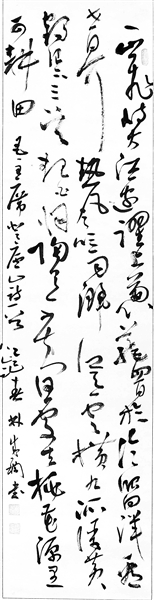 一山飛峙大江邊躍上葱蘢四百旋冷眼向洋看
世界热风吹雨洒江天云横九派浮黄
鶴浪下三吴起白烟陶令不知何處去桃花源里
可耕田 毛主席登庐山诗